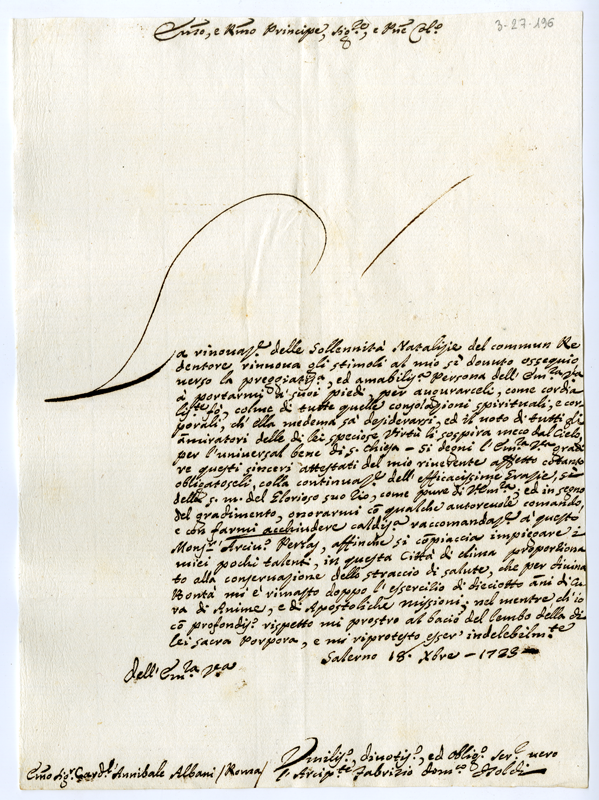 3-27-196
Emo, e Rmo Principe, Sig.re, e Pne Col.o
La rinouaz.e delle Sollennità Natalizie del commun Re
dentore, rinnoua gli stimoli al mio sì douuto ossequio
uerso la preggiatiss.a, ed amabiliss.a Persona dell' Em.za Va
à portarmi à suoi piedi per augurarceli, come cordia
liss.te fò, colme di tutte quelle consolazioni spirituali, e cor
porali, ch' ella medema sà desiderarsi, ed il uoto di tutti gli
amiratori delle di lei speciose Virtù li sospira meco dal Cielo,
per l'uniuersal bene di S. Chiesa – Si degni l'Em.za Va gradi
re questi sinceri attestati del mio riuerente affetto cotanto
obligatoseli, colla continuaz.e dell' efficacissime Grazie, sì
della s. m. del Glorioso suo Zio, come pure di V. Em.za, ed in segno
del gradimento, onorarmi cõ qualche autoreuole comando,
e con farmi acchiudere caldiss.a raccomandaz.e à questo
Mons.r Arciu.o Perlas, affinche si cõpiaccia impiegare i
miei pochi talenti, in questa Città di clima proporziona
to alla conseruazione dello straccio di salute, che per diuina
Bontà mi è rimasto doppo l'essercizio di dieciotto anni di Cu
ra di Anime, e di Apostoliche missioni; nel mentre ch'io
cõ profondiss.o rispetto mi prostro al bacio del lembo della di
lei sacra Porpora, e mi riprotesto esser' indelebilm.te
dell' Em.za Va
Salerno 18. Xbre – 1723 –
Vmiliss.o, diuotiss.o, ed obligs.o ser.e uero
Emo Sig.r Card.l Annibale Albani / Roma /
l'Arcip.te Fabrizio Dom.o